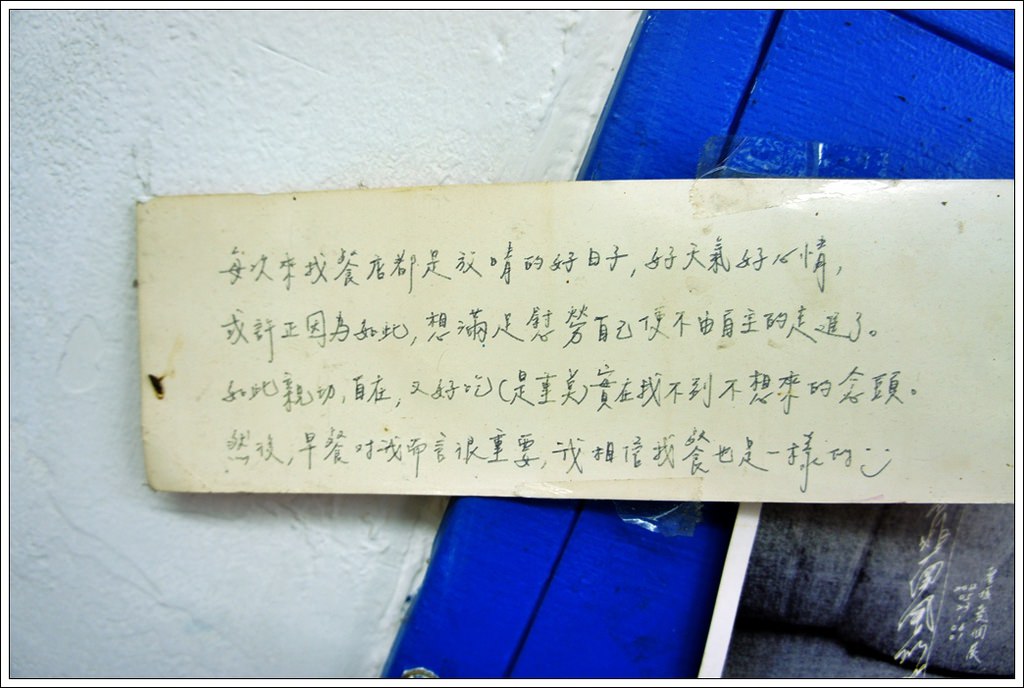 每次來找餐店都是放晴的好日子,好天氣好心情,
或許正因為如此,想滿足慰勞自己便不由自主的走進了。
如此親切,自在,又好吃(是重點)實在找不到不想來的念頭。
然後,早餐對我而言很重要,我相信找餐也是一樣的